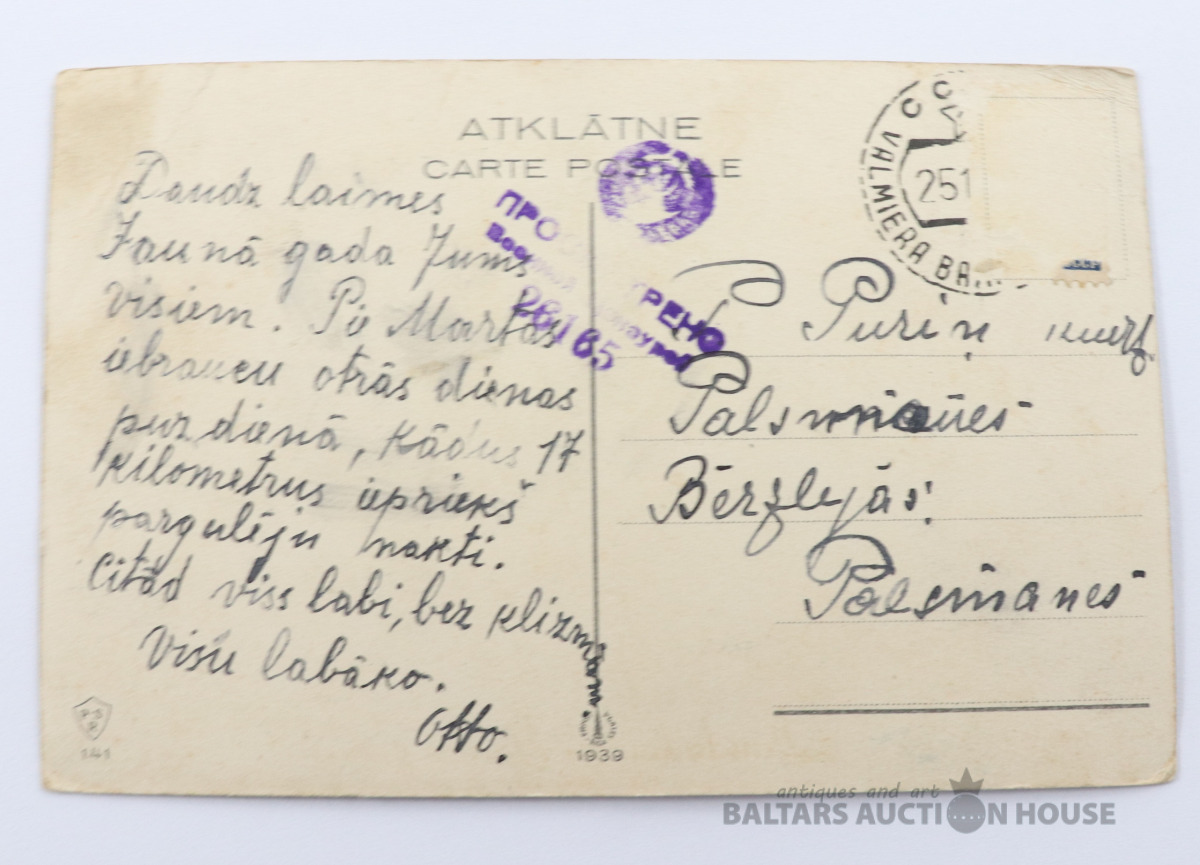 ATKLĀTNE
CARTE POSTALE
Daudz laimes
Jaunā gada Jums
visiem. Pie Martas
iebraucu otrās dienas
pusdienā, kādus 17
kilometrus iepriekš
pargulēju nakti.
Citād viss labi, bez klizmām.
Visu labāko.
Otto.
ПРО РЕНО
Военной Цензурой
26165
VALMIERA
251
СССР
Puriņ
Palsmanes
Bērzlejās
Palsmanes
141
1939
antiques and art
BALTARS AUCTION HOUSE